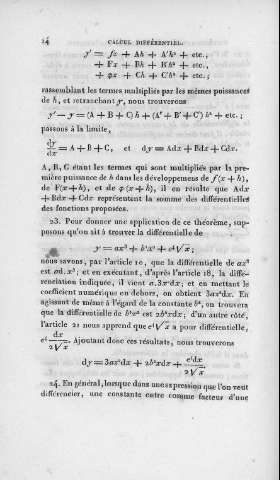 14 CALCUL DIFFÉRENTIEL.
y' = fx + Ah + A'h² + etc.,
+ Fx + Bh + B'h² + etc.,
+ φx + Ch + C'h² + etc.;
rassemblant les termes multipliés par les mêmes puissances
de h, et retranchant y, nous trouverons
y' — y = (A + B + C) h + (A' + B' + C') h² + etc.;
passons à la limite,
dy/dx = A + B + C, et dy = Adx + Bdx + Cdx.
A, B, C étant les termes qui sont multipliés par la pre-
mière puissance de h dans les développemens de f(x + h),
de F(x + h), et de φ(x + h), il en résulte que Adx
+ Bdx + Cdx représentent la somme des différentielles
des fonctions proposées.
23. Pour donner une application de ce théorème, sup-
posons qu'on ait à trouver la différentielle de
y = ax³ + b²x² + c⁴√x;
nous savons, par l'article 10, que la différentielle de ax³
est ad.x³; et en exécutant, d'après l'article 18, la diffé-
renciation indiquée, il vient a.3x²dx; et en mettant le
coefficient numérique en dehors, on obtient 3ax²dx. En
agissant de même à l'égard de la constante b², on trouvera
que la différentielle de b²x² est 2b²xdx; d'un autre côté,
l'article 21 nous apprend que c⁴√x a pour différentielle,
c⁴ dx/2√x. Ajoutant donc ces résultats, nous trouverons
dy = 3ax²dx + 2b²xdx + c⁴dx/2√x.
24. En général, lorsque dans une expression que l'on veut
différencier, une constante entre comme facteur d'une